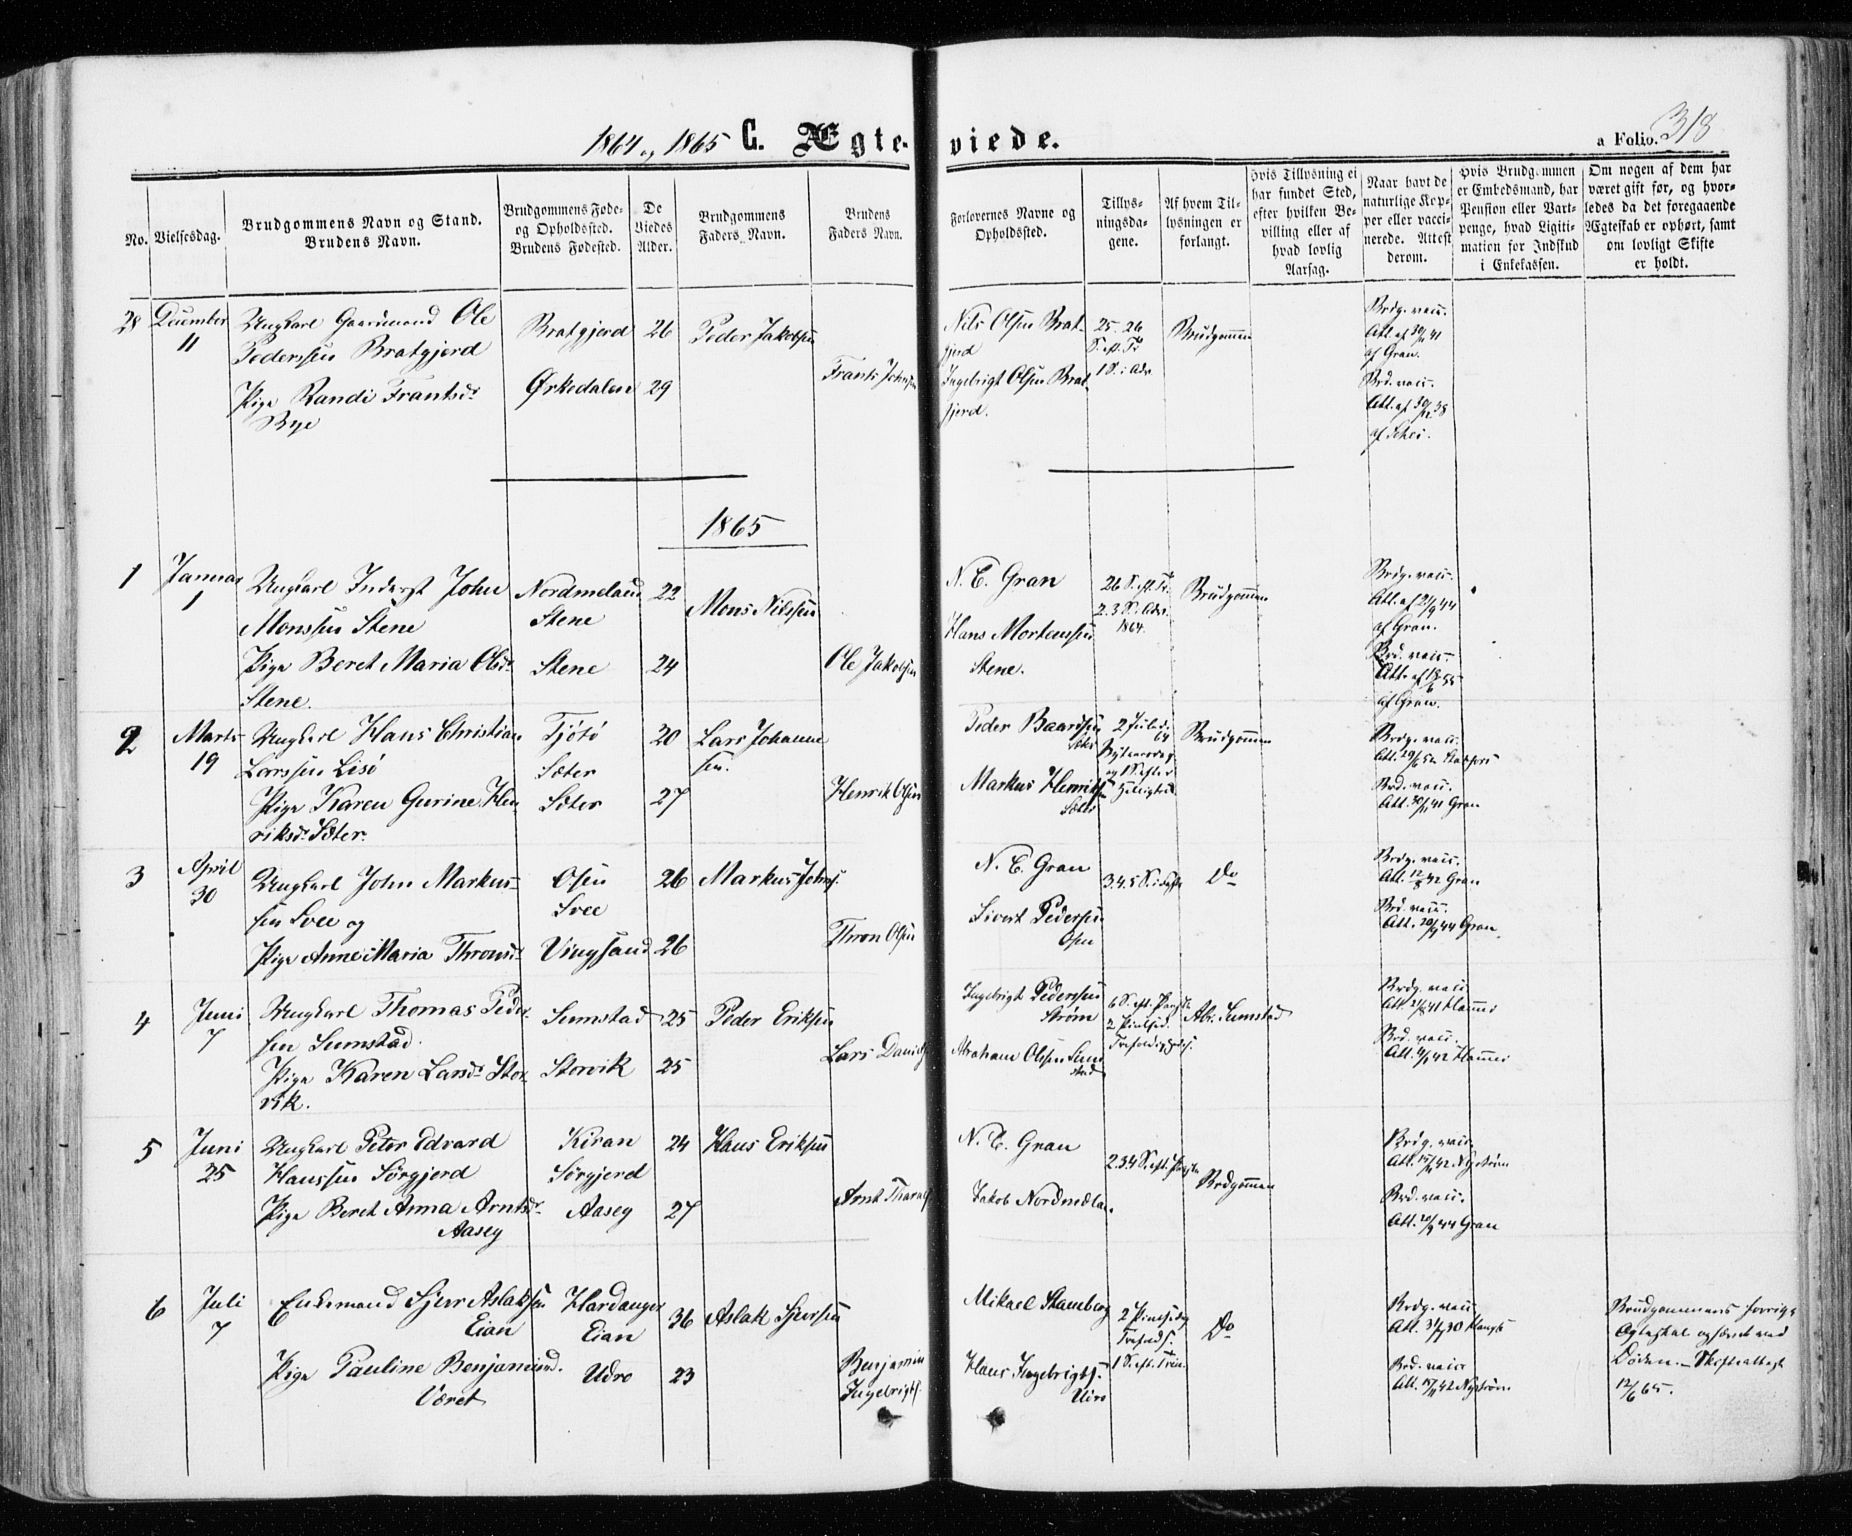 1864 og 1865 C. Ægteviede.
a Folio. 318
No.
Vielsesdag.
Brudgommens Navn og Stand.
Brudens Navn.
Brudgommens Føde-
og Opholdssted.
Brudens Fødested.
De
Viedes
Alder.
Brudgommens
Faders Navn.
Brudens
Faders Navn.
Forlovernes Navne og
Opholdssted.
Tillys-
ningsda-
gene.
Af hvem Til-
lysningen er
forlangt.
Hvis Tillysning ei
har fundet Sted,
efter hvilken Be-
villing eller af
hvad lovlig
Aarsag.
Naar havt de
naturlige Kop-
per eller vacci-
nerede. Attest
derom.
Hvis Brudgommen
er Embedsmand, har
Pension eller Vart-
penge, hvad Legiti-
mation for Indskud
i Enkekassen.
Om nogen af dem har
været gift før, og hvor-
ledes da det foregaaende
Ægteskab er ophørt, samt
om lovligt Skifte
er holdt.
28
December
11
Ungkarl Gaardmand Ole
Pederssen Bratgjerd
Pige Randi Frantsdr
Bye
Bratgjerd
Ørkedalen
26
29
Peder Jakobsen
Frants Johnsen
Nils Olsen Brat-
fjerd
Ingebrigt Olsen Brat-
fjerd.
25. 26
S. eft. Tr
1 S. i Adv
Brudgommen
Brdg. vacc.
Att. af 30/ 41
af Gran.
Brd. vacc.
Att. af 30/12 38
af Schei.
1865
1
Januar
1
Ungkarl Inderst John
Monssen Stene
Pige Beret Maria Olsdr
Stene.
Nordmeland
Stene
Stene
22
24
Mons Nilssen
Ole Jakobsen
N. C. Gran
Hans Mortensen
Stene.
26 S. eft. Tr.
2. 3 S. Adv.
1864.
Brudgommen
Brdg. vacc.
Att. af 2/9 44
af Gran.
Brd. vacc.
Att. af 18/6 55
af Gran.
2
Marts
19
Ungkarl Hans Christian
Larssen Lisø
Pige Karen Gurine Hen
riksdr Sæter.
Tjøtø
Sæter
Sæter
20
27
Lars Johanne
sen.
Henrik Olsen
Peder Baardsen
Sæter
Markus Henriksen
Sæter
2 Juledag
64
Nytaarsdag
og 1 S. efter
Helligtre
Brudgommen
Brdg. vacc.
Att. 29/6 52
Brd. vacc.
Att. 30/ 41 Gran
3
April
30
Ungkarl John Markus-
sen Svee og
Pige Anne Maria Thronsdr
Osen
Svee
Vingsand
26
26
Markus Johns.
Thron Olsen
N. C. Gran
Sivert Pedersen
Osen
3. 4. 5 S. i Faste
Do
Brdg. vacc.
Att. 12/8 42 Gran
Brd. vacc.
Att. 20/9 44 Gran
4
Juni
7
Ungkarl Thomas Peder-
sen Sumstad.
Pige Karen Larsdr Stor-
vik.
Sumstad
Storvik
25
25
Peder Eriksen
Lars Daniels.
Ingebrigt Pederssen
Strøm
Abraham Olssen Sum
stad
6 S. eft. Paaske
2 Pintsed.
Trefoldighds.
Abr. Sumstad
Brdg. vacc
Att. 21/8 41 Hammer
Brd. vacc.
Att. 4/ 42 Hammer
5
Juni
25
Ungkarl Peter Edvard
Hanssen Sørgjerd
Pige Beret Anna Arntsdr
Aasey
Kiran
Sørgjerd
Aasey
24
27
Hans Eriksen
Arnt Tharald
N. C. Gran
Jakob Nordmelan.
2. 3. 4 S. eft. Paaske
Brdgommen
Brdg. vacc.
Att. 15/ 42 Nystrøm
Brd. vacc.
Att. 20/9 44 Gran
6
Juli
7
Enkemand Sjur Aslaksen
Eian
Pige Pauline Benjaminsd.
Været
Hardanger
Eian
Udro
36
23
Aslak Sjursen
Benjamin
Ingebrigts.
Mikael Stamberg
Hans Ingebrigts.
Udro
2 Pintsedg
Trefold S.
1 S. eft. Trin.
Do
Brdg. vacc.
Att. 31/ 30
Brd. vacc
Att. 15/ 42 Nystrøm
Brudgommens forrige
Ægteskab ophævet ved
Døden. - Skifteattest
12/6 65.